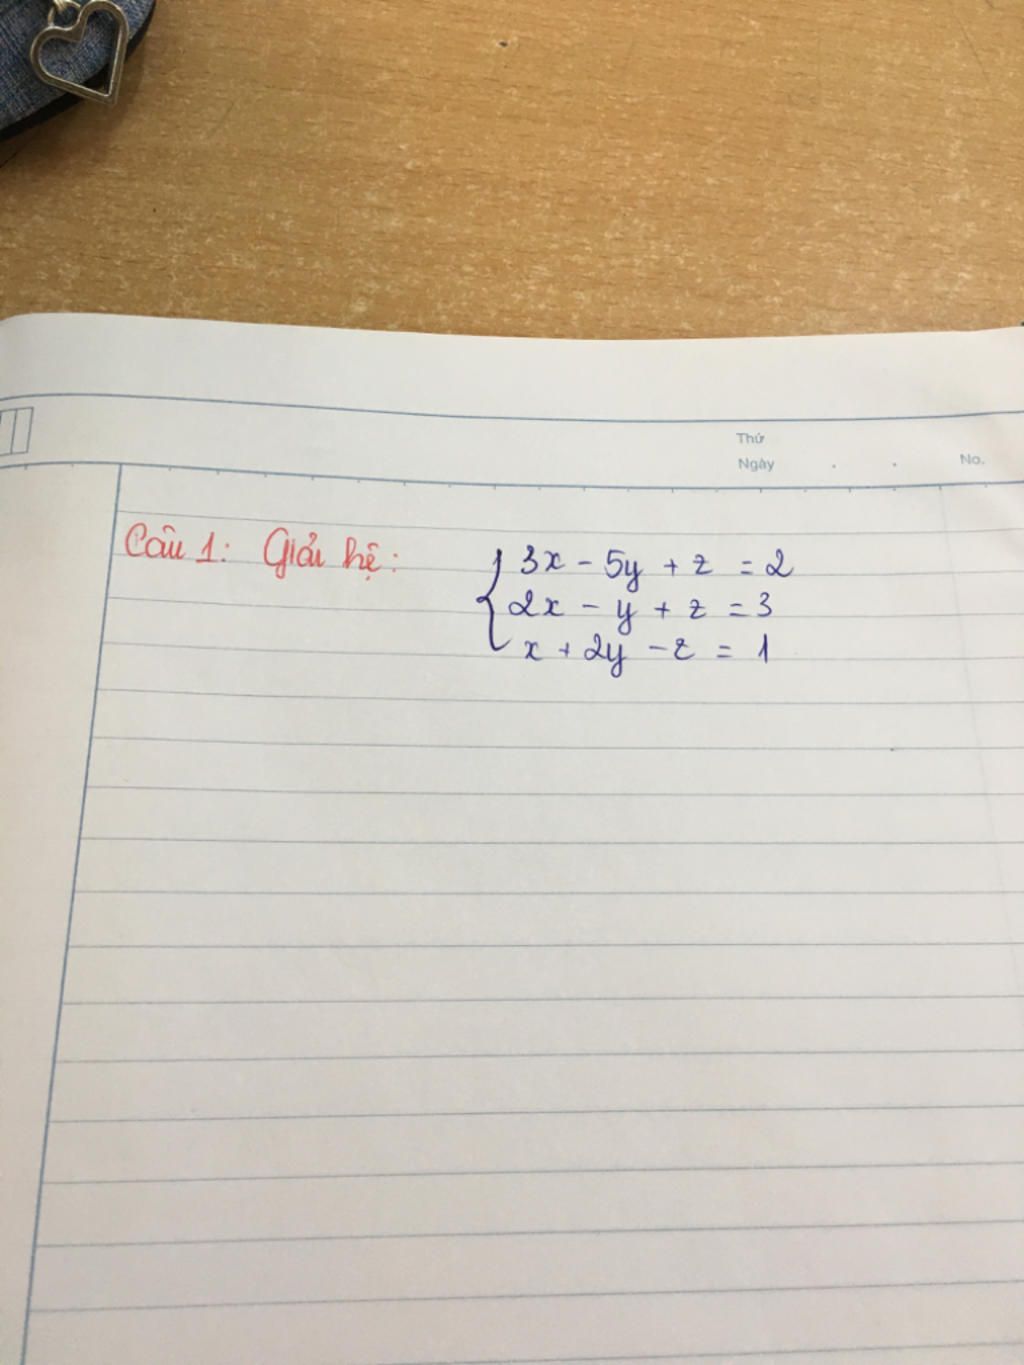 Thứ
Ngày . . No.
Câu 1: Giải hệ: { 3x - 5y + z = 2
2x - y + z = 3
x + 2y - z = 1